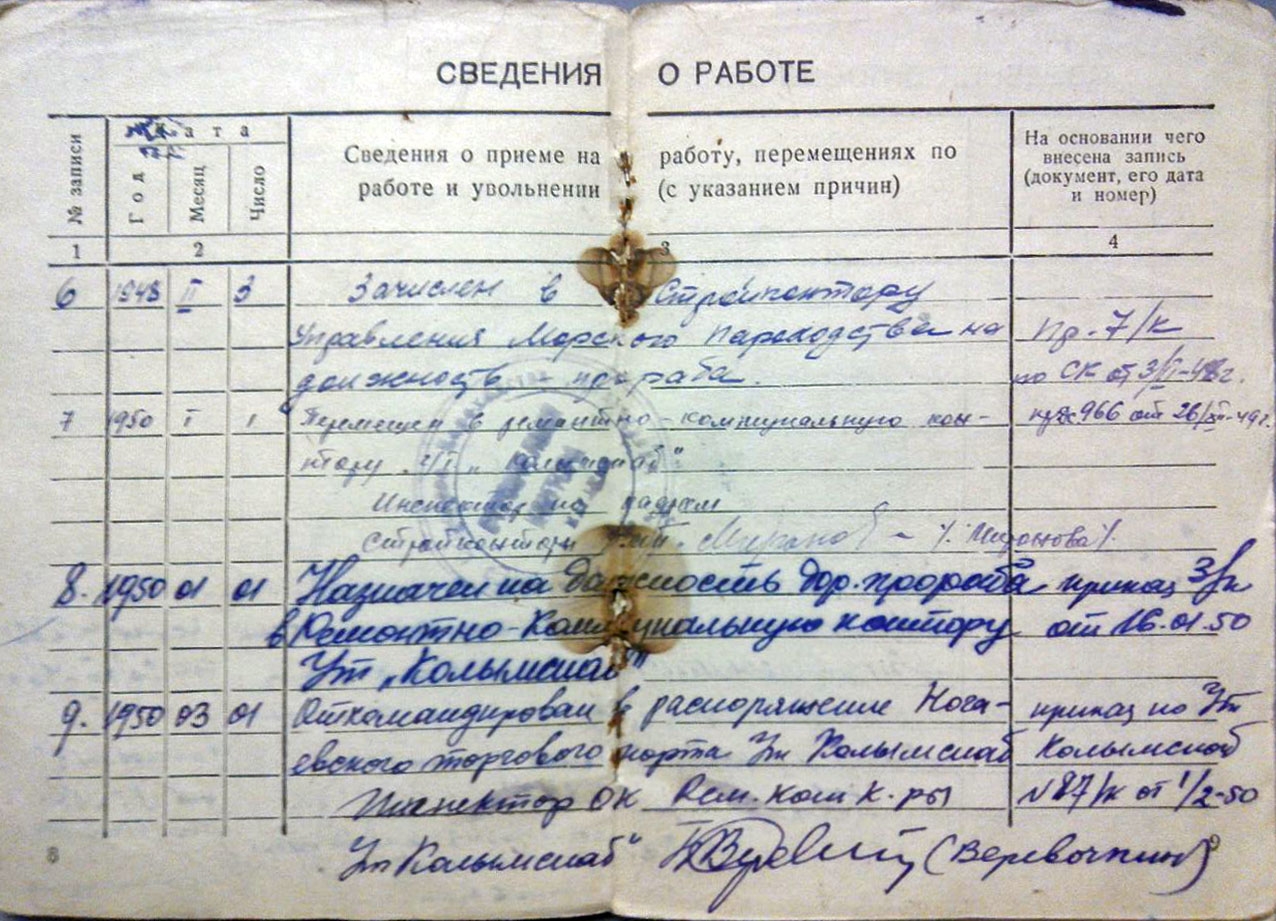 СВЕДЕНИЯ О РАБОТЕ
№ записи
Дата
Год
Месяц
Число
Сведения о приеме на работу, перемещениях по
работе и увольнении (с указанием причин)
На основании чего
внесена запись
(документ, его дата
и номер)
1 2 3 4
6 1948 II 3 Зачислен в Стройконтору
Управления Морского Пароходства на Пр. 7/к
должность прораба. по СК от 3/II-48г.
7 1950 I 1 Перемещен в ремонтно-коммунальную кон- пр 966 от 26/XII-49г.
тору "УТ" Колымснаб".
Инспектор по кадрам
Стройконторы
8. 1950 01 01 Назначен на должность дор. прораба приказ 3/к
в Ремонтно-Коммунальную контору от 16.01.50
Ут "Колымснаб"
9. 1950 03 01 Откомандирован в распоряжение Нога- приказ по Ут
евского торгового порта Ут Колымснаб Колымснаб
Инспектор ОК Рем. ком к-ры №87/к от 1/2-50
Ут Колымснаб" (Веревочкин)
8
9